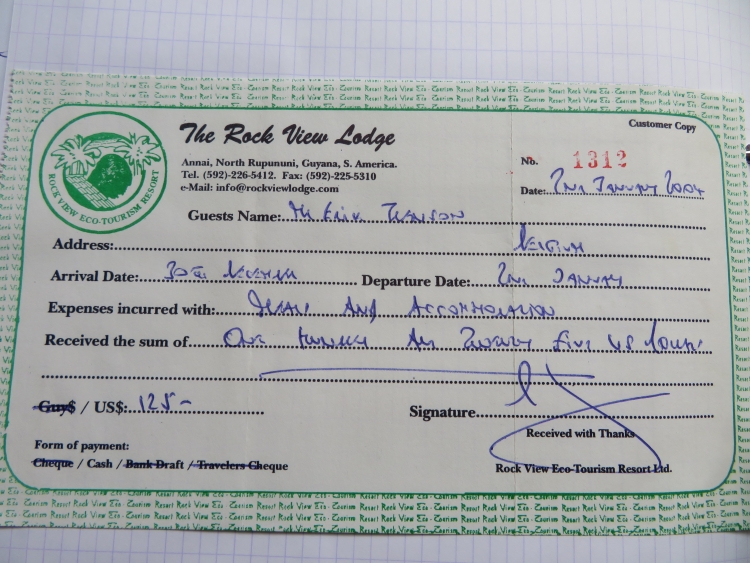 The Rock View Lodge
Customer Copy
Annai, North Rupununi, Guyana, S. America.
Tel. (592)-226-5412. Fax: (592)-225-5310
e-Mail: info@rockviewlodge.com
No. 1312
Date: 2nd January 2004
ROCK VIEW ECO-TOURISM RESORT
Guests Name: Mr Erik
Address: Belgium
Arrival Date: 30th December
Departure Date: 2nd January
Expenses incurred with: Meals And Accommodation
Received the sum of One hundred And Twenty Five US Dollars
Guy$ / US$: 125-
Signature
Received with Thanks
Form of payment:
Cheque / Cash / Bank Draft / Travelers Cheque
Rock View Eco-Tourism Resort Ltd.